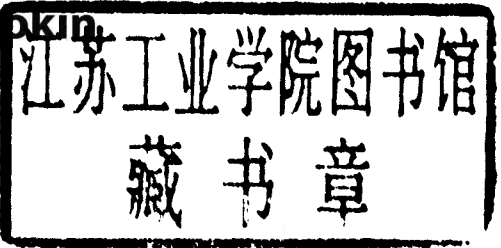 okin
江苏工业学院图书馆
藏书章